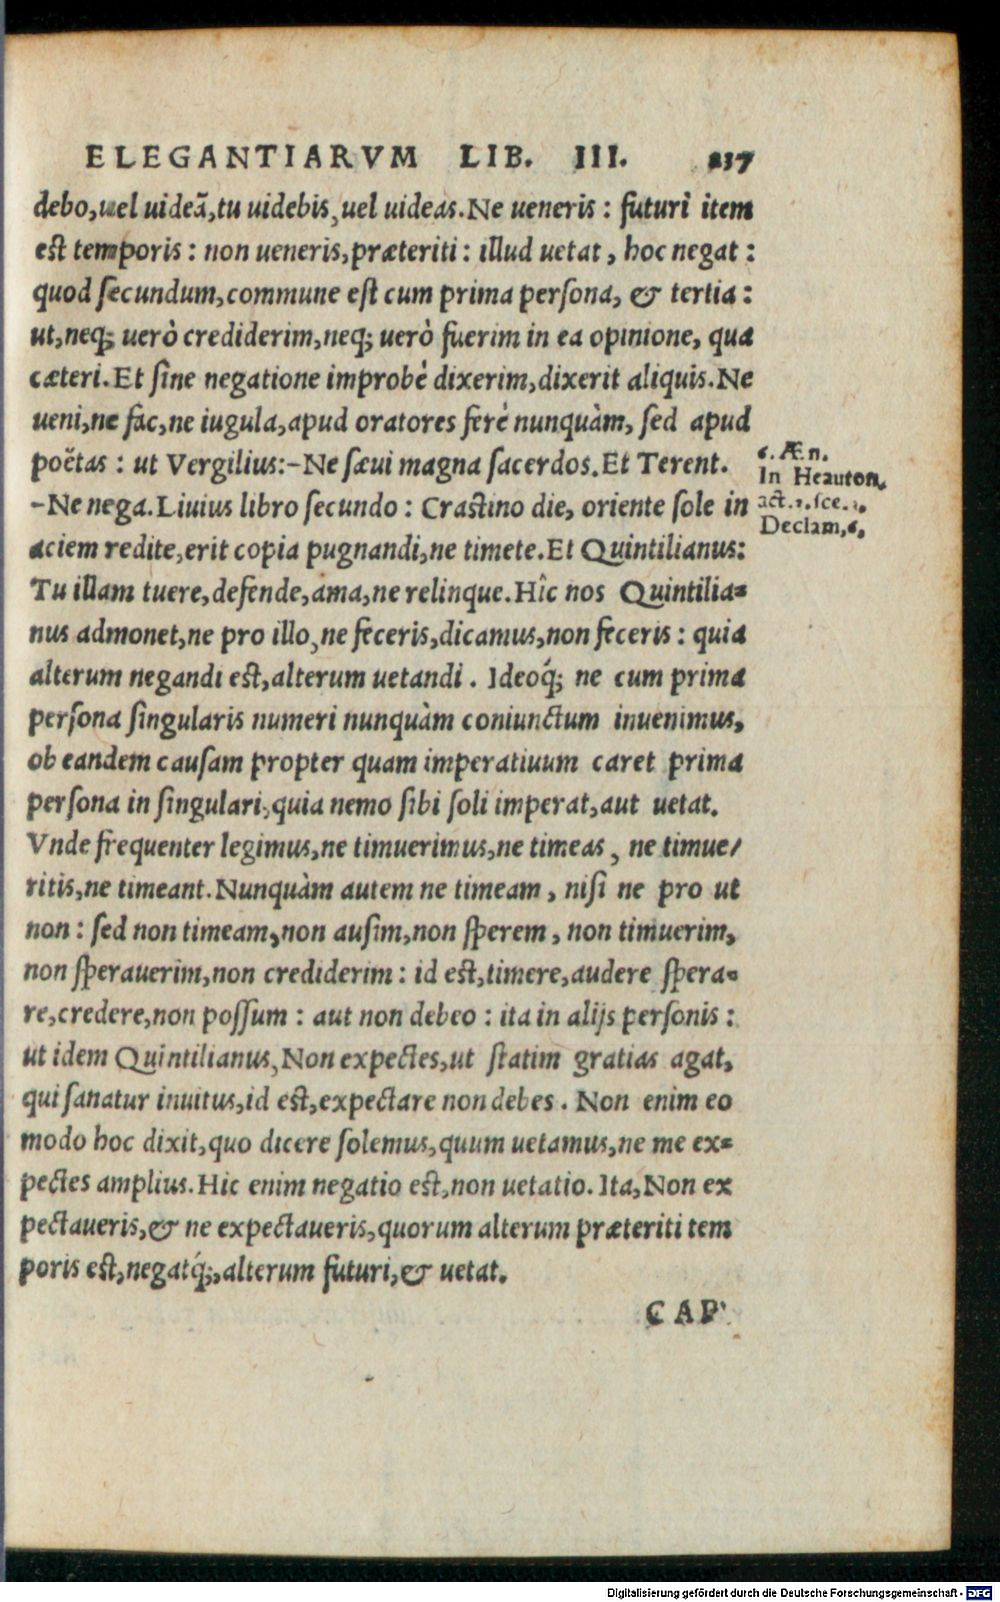 ELEGANTIARVM LIB. III. 237
debo,uel uideã,tu uidebis,uel uideas.Ne ueneris : futuri item
est temporis : non ueneris,præteriti : illud uetat , hoc negat :
quod secundum,commune est cum prima persona, & tertia :
ut,neq; uerò crediderim,neq; uerò fuerim in ea opinione, qua
cæteri.Et sine negatione improbè dixerim,dixerit aliquis.Ne
ueni,ne fac,ne iugula,apud oratores ferè nunquàm, sed apud
poëtas : ut Vergilius:-Ne sæui magna sacerdos.Et Terent.
6. Æn.
In Heauton.
-Ne nega.Liuius libro secundo : Crastino die, oriente sole in
act. sce.
Declam,6,
aciem redite,erit copia pugnandi,ne timete.Et Quintilianus:
Tu illam tuere,defende,ama,ne relinque.Hîc nos Quintilia=
nus admonet,ne pro illo,ne feceris,dicamus,non feceris : quia
alterum negandi est,alterum uetandi . Ideoq́; ne cum prima
persona singularis numeri nunquàm coniunctum inuenimus,
ob eandem causam propter quam imperatiuum caret prima
persona in singulari,quia nemo sibi soli imperat,aut uetat.
Vnde frequenter legimus,ne timuerimus,ne timeas , ne timue/
ritis,ne timeant.Nunquàm autem ne timeam , nisi ne pro ut
non : sed non timeam,non ausim,non sperem , non timuerim,
non sperauerim,non crediderim : id est,timere,audere spera=
re,credere,non possum : aut non debeo : ita in alijs personis :
ut idem Quintilianus,Non expectes,ut statim gratias agat,
qui sanatur inuitus,id est,expectare non debes . Non enim eo
modo hoc dixit,quo dicere solemus,quum uetamus,ne me ex=
pectes amplius.Hic enim negatio est,non uetatio. Ita,Non ex
pectaueris,& ne expectaueris,quorum alterum præteriti tem
poris est,negatq́;,alterum futuri,& uetat.
CAP
Digitalisierung gefördert durch die Deutsche Forschungsgemeinschaft - DFG